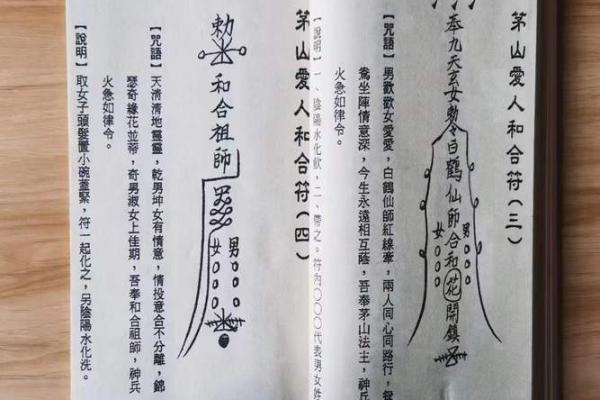 茅山愛人和合符(三)
奉九天玄女勅令白鶴仙師合和花開鎮
男
女
【咒語】男歡歡女愛愛,白鶴仙師紅線牽,兩人同心同路行,鴛
鴦坐陣情意深,今生永遠相互蔭,吾奉茅山法主,神兵
火急如律令。
【說明】一、陰陽水化飲,二、帶之。符內〇〇〇代表男女姓
茅山愛人和合符(四)
勅
和合祖師
男
女
【咒語】天清清地靈靈,乾男坤女有情意,情投意合不分離,錦
瑟奇緣花並蒂,奇男淑女上佳期,吾奉和合祖師,神兵
火急如律令。
【說明】取女子頭髮置小碗蓋緊,符一起化之,另陰陽水化洗。